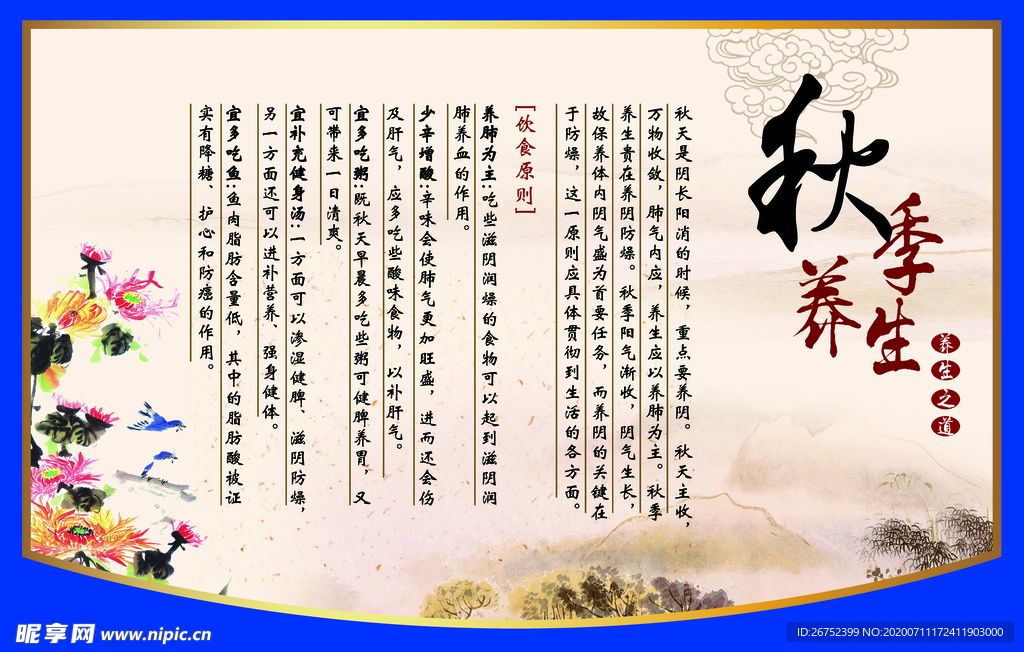 秋季养生
养生之道
秋天是阴长阳消的时候，重点要养阴。秋天主收，
万物收敛，肺气内应，养生应以养肺为主。秋季
养生贵在养阴防燥。秋季阳气渐收，阴气生长，
故保养体内阴气盛为首要任务，而养阴的关键在
于防燥，这一原则应具体贯彻到生活的各方面。
[饮食原则]
养肺为主:吃些滋阴润燥的食物可以起到滋阴润
肺养血的作用。
少辛增酸:辛味会使肺气更加旺盛，进而还会伤
及肝气，应多吃些酸味食物，以补肝气。
宜多吃粥:既秋天早晨多吃些粥可健脾养胃，又
可带来一日清爽。
宜补充健身汤:一方面可以渗湿健脾、滋阴防燥，
另一方面还可以进补营养、强身健体。
宜多吃鱼:鱼肉脂肪含量低，其中的脂肪酸被证
实有降糖、护心和防癌的作用。
昵享网 www.nipic.cn
ID:26752399 NO:20200711172411903000